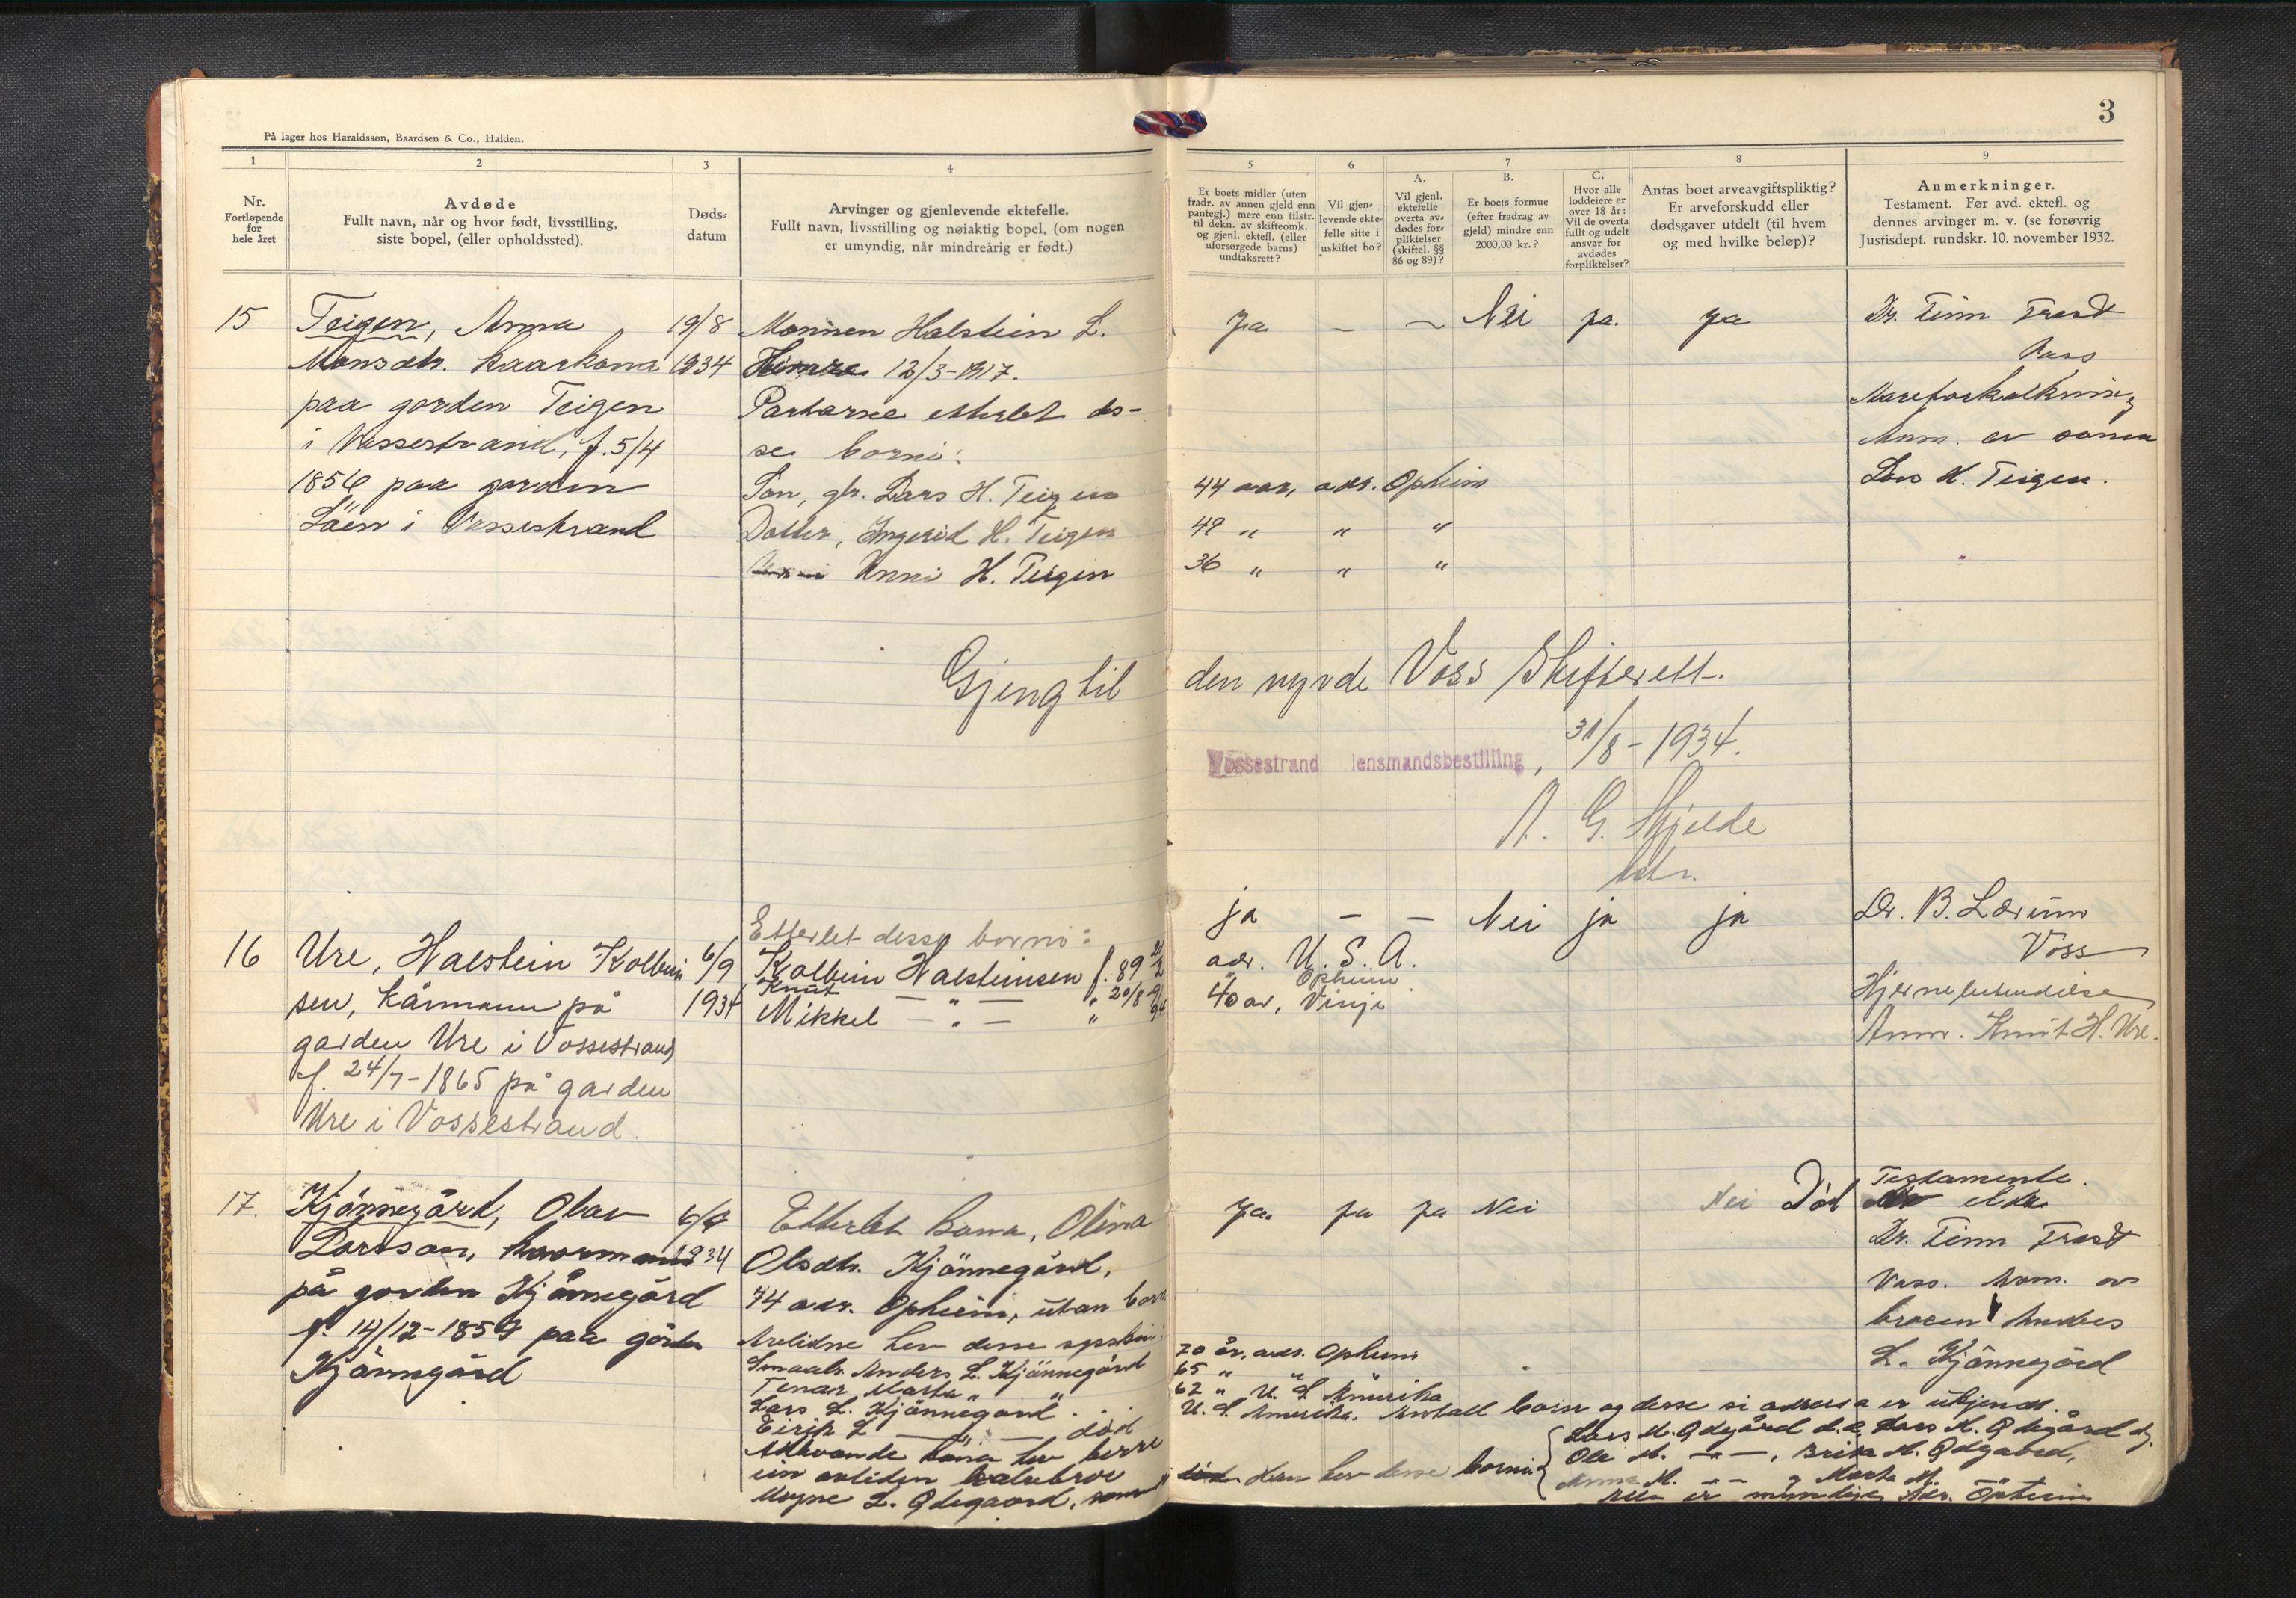 3
På lager hos Haraldssøn, Baardsen & Co., Halden.
1
2
3
4
5
6
7
8
9
Nr.
Fortløpende
for
hele året
Avdøde
Fullt navn, når og hvor født, livsstilling,
siste bopel, (eller opholdssted).
Døds-
datum
Arvinger og gjenlevende ektefelle.
Fullt navn, livsstilling og nøiaktig bopel, (om nogen
er umyndig, når mindreårig er født.)
Er boets midler (uten
fradr. av annen gjeld enn
pantegj.) mere enn tilstr.
til dekn. av skifteomk.
og gjenl. ektefl. (eller
uforsørgede barns)
undtaksrett?
Vil gjen-
levende ekte-
felle sitte i
uskiftet bo?
A.
Vil gjenl.
ektefelle
overta av-
dødes for-
pliktelser
(skiftel. §§
86 og 89)?
B.
Er boets formue
(efter fradrag av
gjeld) mindre enn
2000,00 kr.?
C.
Hvor alle
loddeiere er
over 18 år:
Vil de overta
fullt og udelt
ansvar for
avdødes
forpliktelser?
Antas boet arveavgiftspliktig?
Er arveforskudd eller
dødsgaver utdelt (til hvem
og med hvilke beløp)?
Anmerkninger.
Testament. Før avd. ektefl. og
dennes arvinger m. v. (se forøvrig
Justisdept. rundskr. 10. november 1932.
15
Teigen, Anna
Monsdtr. kaarkona
paa garden Teigen
i Vossestrand, f. 5/4
1856 paa garden
Låen i Vossestrand
19/8
1934
Mannen Halstein L.
Himre 12/3-1917.
Partarne etterlet des-
se borni:
Son, gbr. Lars H. Teigen
Dotter, Ingerid H. Teigen
Unni H. Teigen
Ja — — Nei ja. ja
44 aar, adr. Opheim
49 " " "
36 " " "
Dr. Finn Trost
Voss
Aareforkalkning
Anm. av sonen
Lars H. Teigen.
Gjeng til den ærde Voss Skifterett.
Vossestrand lensmandsbestilling, 31/8-1934.
A. G. Skjelde
lstr.
16
Ure, Halstein Kolbein
sen, kårmann på
garden Ure i Vossestrand
f. 24/7-1865 på garden
Ure i Vossestrand.
6/9
1934
Etterlet desse borni:
Kolbein Halsteinsen f. 89
Knut
Mikkel — " — "
ja — — Nei ja ja
adr. U. S. A.
" Opheim
40 år, Vinje
Dr. B. Lærum
Voss
Hjernebetendelse
Anm. Knut H. Ure.
17.
Kjönnegård, Olav
Larsson, kaarmann
på garden Kjönnegård
f. 14/12-1859 paa garden
Kjönnegård
1934
Etterlet kona, Olina
Olsdtr. Kjönnegård,
74 adr. Opheim, utan born
Avlidne hev desse syskin:
Smaabr. Anders L. Kjönnegård
Marta " "
Lars L. Kjönnegard
Eirik L — " — död
Attlevande kona hev berre
ein avliden halvbror
Mogne L. Ødegaard, som
Ja. ja ja Nei
Nei
70 år, adr. Opheim
65 " "
62 " U. S. Amerika
U. S. Amerika. Antall born og desse si adressa er ukjend.
Han hev desse borni:
Lars M. Ødegård d. e., Lars M. Ødegård d. y.
Ole M. — " —, Brita M. Ødgaard,
Anna M. — " — og Marta M.
Alle er myndige, Adr. Opheim
Testamente.
Dr. Finn Trost
Voss. Anm. av
broren Anders
L. Kjönnegård